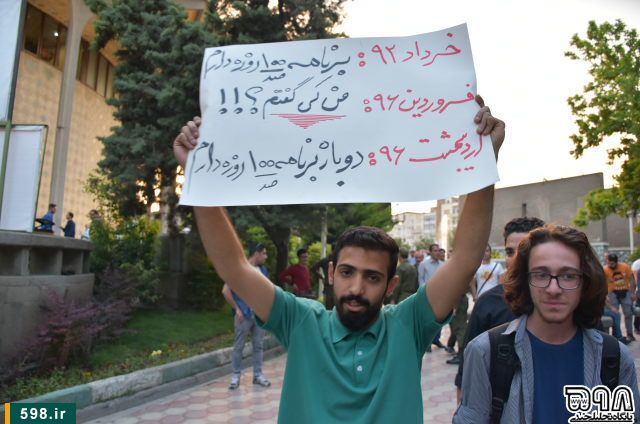 خرداد ۹۲: برنامه ۱۰۰ صد روزه دارم
فروردین ۹۶: من کی گفتم؟!!!
اردیبهشت ۹۶: دوباره برنامه ۱۰۰ صد روزه دارم
598.ir